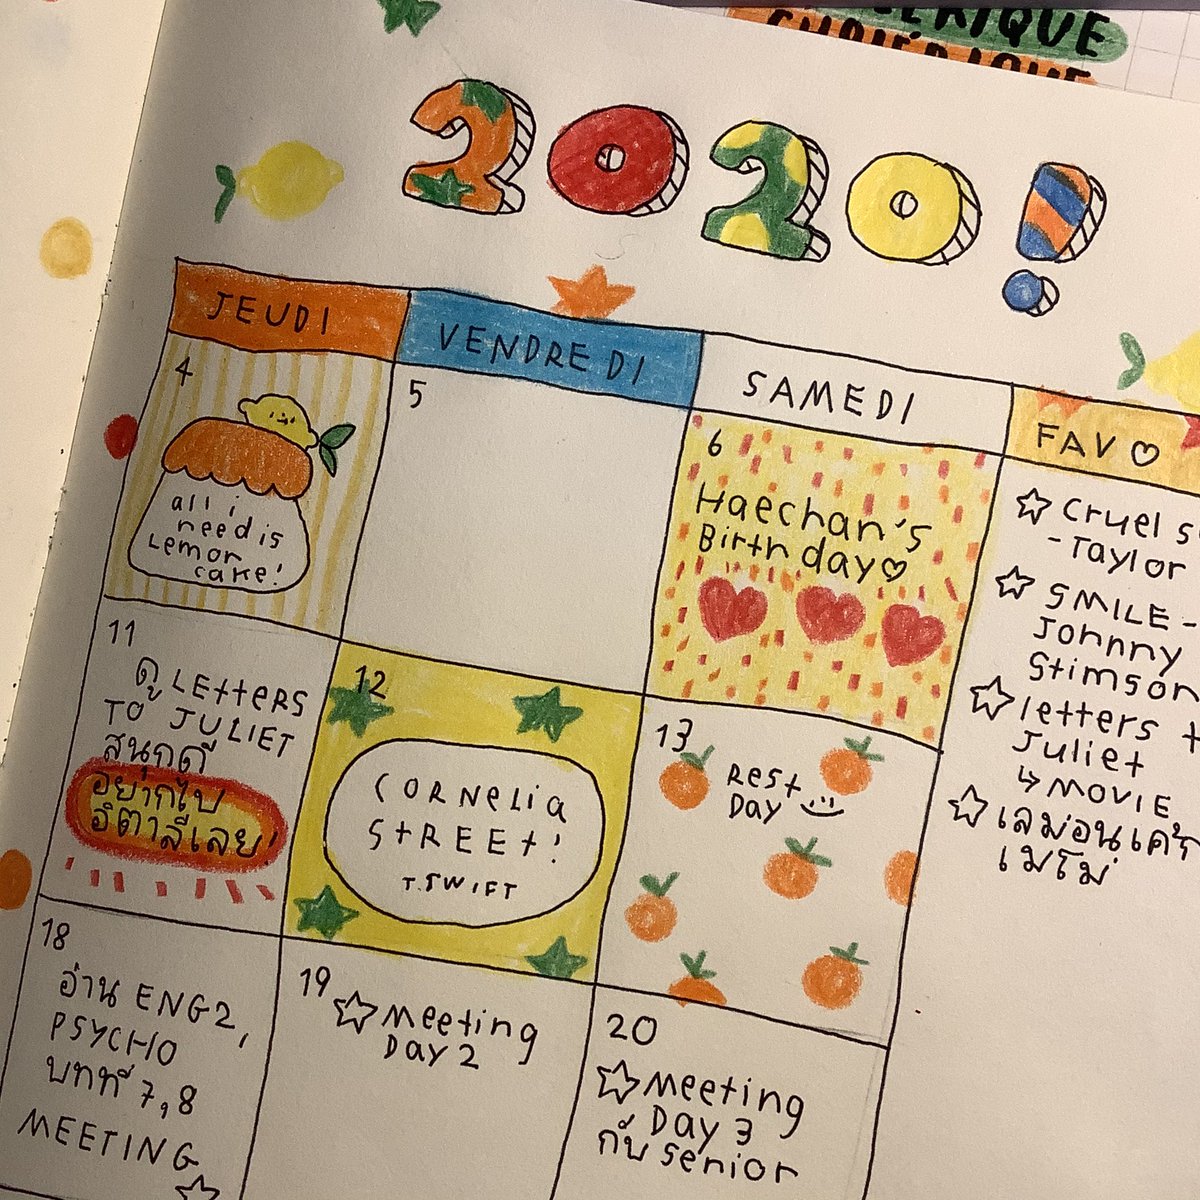 2020!
JEUDI
VENDREDI
SAMEDI
FAV
4
all i
need is
Lemon
cake!
5
6
Haechan's
Birthday
Cruel S
-Taylor
SMILE -
Johnny
Stimson
letters t
Juliet
↳ MOVIE
เลม่อนเค้ก
เมโม่
11
ดู LEttERS
TO JULIET
สนุกดี
อยากไป
อิตาลีเลย!
12
CORNELIA
StREEt!
T.SWIFT
13
REST
DAY
18
อ่าน ENG2,
PSYCHO
บทที่ 7,8
MEETING
19
Meeting
DAY 2
20
Meeting
DAY 3
กับ senior